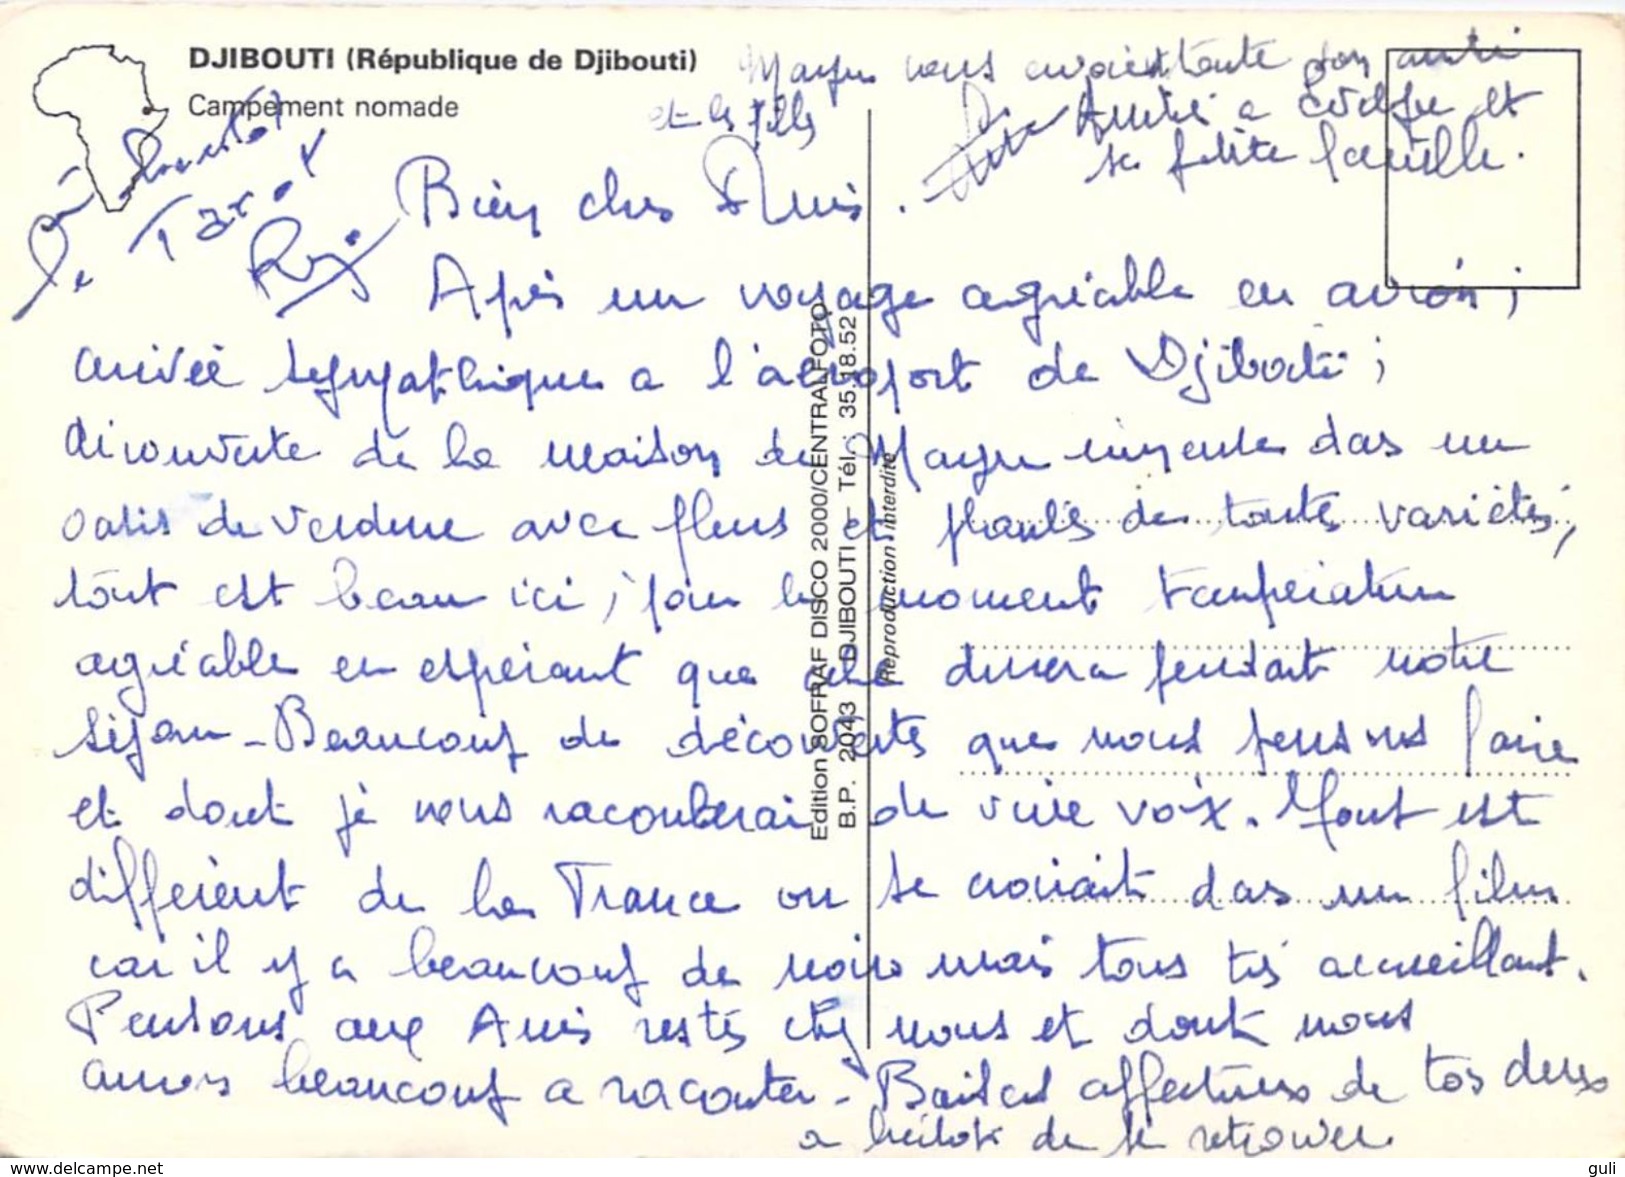 DJIBOUTI (République de Djibouti)
Campement nomade
vous toute son amitié
et les filles
Amitié a et
sa petite famille.
Bien chers Amis.
Après un voyage agréable en avion ;
arrivée sympathique a l'aéroport de Djibouti ;
découverte de la maison de das un
oasis de verdure avec fleurs et plantes de toutes variétés,
tout est beau ici ; pour le moment température
agréable en espérant que cela durera pendant notre
séjour - Beaucoup de découvertes que nous pensons faire
et dont je vous raconterai de vive voix. Tout est
différent de la France on se croirait das un film
car il y a beaucoup de noirs mais tous très accueillant.
Pensons aux Amis restés chez nous et dont nous
aurons beaucoup a raconter - Baisers affectueux de tos deux
a bientôt de te retrouver.
Edition SOFRAF DISCO 2000/CENTRALFOTO
B.P. 2043 DJIBOUTI – Tél. : 35.18.52
Reproduction interdite
www.delcampe.net
guli